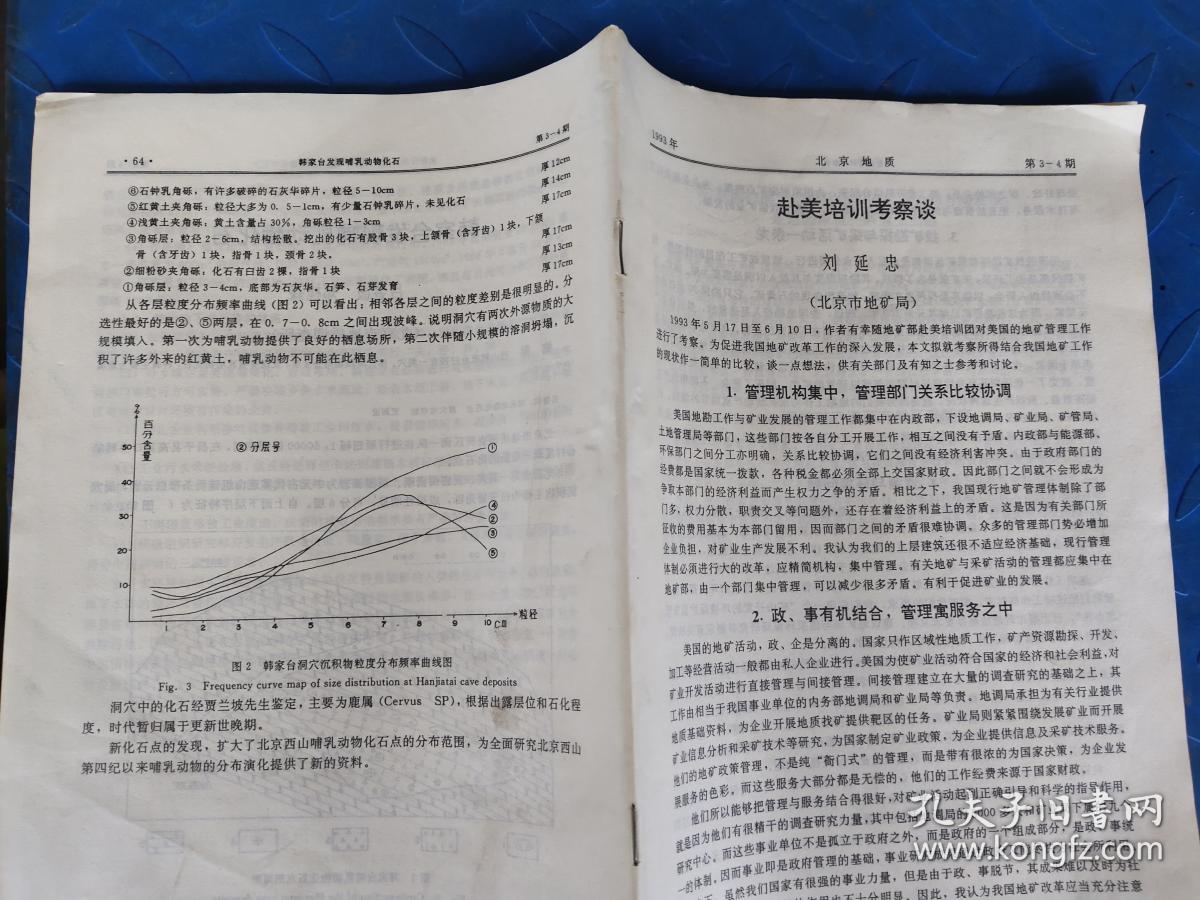 ·64·
韩家台发现哺乳动物化石
第3－4期
⑥石钟乳角砾，有许多破碎的石灰华碎片，粒径5－10cm
厚12cm
⑤红黄土夹角砾：粒径大多为0.5－1cm，有少量石钟乳碎片，未见化石
厚14cm
④浅黄土夹角砾：黄土含量占30%，角砾粒径1－3cm
厚17cm
③角砾层：粒径2－6cm，结构松散。挖出的化石有股骨3块，上颌骨（含牙齿）1块，下颌
骨（含牙齿）1块，指骨1块，颈骨2块。
厚17cm
②细粉砂夹角砾：化石有臼齿2棵，指骨1块
厚13cm
①角砾层：粒径3－4cm，底部为石灰华。石笋、石芽发育
厚17cm
从各层粒度分布频率曲线（图2）可以看出：相邻各层之间的粒度差别是很明显的。分
选性最好的是②、⑤两层，在0.7－0.8cm之间出现波峰。说明洞穴有两次外源物质的大
规模填入。第一次为哺乳动物提供了良好的栖息场所，第二次伴随小规模的溶洞坍塌，沉
积了许多外来的红黄土，哺乳动物不可能在此栖息。
%
百分含量
②分层号
50
40
30
20
10
①
④
②
③
⑤
1 2 3 4 5 6 7 8 9 10 CM
粒径
图2 韩家台洞穴沉积物粒度分布频率曲线图
Fig. 3 Frequency curve map of size distribution at Hanjiatai cave deposits
洞穴中的化石经贾兰坡先生鉴定，主要为鹿属（Cervus SP），根据出露层位和石化程
度，时代暂归属于更新世晚期。
新化石点的发现，扩大了北京西山哺乳动物化石点的分布范围，为全面研究北京西山
第四纪以来哺乳动物的分布演化提供了新的资料。
1993年
北京地质
第3－4期
赴美培训考察谈
刘延忠
（北京市地矿局）
1993年5月17日至6月10日，作者有幸随地矿部赴美培训团对美国的地矿管理工作
进行了考察。为促进我国地矿改革工作的深入发展，本文拟就考察所得结合我国地矿工作
的现状作一简单的比较，谈一点想法，供有关部门及有知之士参考和讨论。
1. 管理机构集中，管理部门关系比较协调
美国地勘工作与矿业发展的管理工作都集中在内政部，下设地调局、矿业局、矿管局、
土地管理局等部门，这些部门按各自分工开展工作，相互之间没有予盾。内政部与能源部、
环保部门之间分工亦明确，关系比较协调，它们之间没有经济利害冲突。由于政府部门的
经费都是国家统一拨款，各种税金都必须全部上交国家财政。因此部门之间就不会形成为
争取本部门的经济利益而产生权力之争的矛盾。相比之下，我国现行地矿管理体制除了部
门多，权力分散，职责交叉等问题外，还存在着经济利益上的矛盾。这是因为有关部门所
征收的费用基本为本部门留用，因而部门之间的矛盾很难协调。众多的管理部门势必增加
企业负担，对矿业生产发展不利。我认为我们的上层建筑还很不适应经济基础，现行管理
体制必须进行大的改革，应精简机构，集中管理。有关地矿与采矿活动的管理都应集中在
地矿部，由一个部门集中管理，可以减少很多矛盾。有利于促进矿业的发展。
2. 政、事有机结合，管理寓服务之中
美国的地矿活动，政、企是分离的。国家只作区域性地质工作，矿产资源勘探、开发、
加工等经营活动一般都由私人企业进行。美国为使矿业活动符合国家的经济和社会利益，对
矿业开发活动进行直接管理与间接管理。间接管理建立在大量的调查研究的基础之上，其
工作由相当于我国事业单位的内务部地调局和矿业局等负责。地调局承担为有关行业提供
地质基础资料，为企业开展地质找矿提供靶区的任务。矿业局则紧紧围绕发展矿业而开展
矿业信息分析和采矿技术等研究，为国家制定矿业政策，为企业提供信息及采矿技术服务。
他们的地矿政策管理，不是纯“衙门式”的管理，而是带有很浓的为国家决策，为企业发
展服务的色彩。而这些服务大部分都是无偿的，他们的工作经费来源于国家财政。
他们所以能够把管理与服务结合得很好，对矿业活动起到正确引导和科学的指导作用，
就是因为他们有很精干的调查研究力量，其中包括地调局的
研究中心。而这些事业单位不是孤立于政府之外，而是政府的一个组成部分，是政、事统
一的体制。因而事业即是政府管理的基础，事业研究
虽然我们国家有很强的事业力量，但是由于政、事脱节，其成果难以及时为社
作用也不十分明显。因此，我认为我国地矿改革应当充分注意
孔夫子旧书网
www.kongfz.com